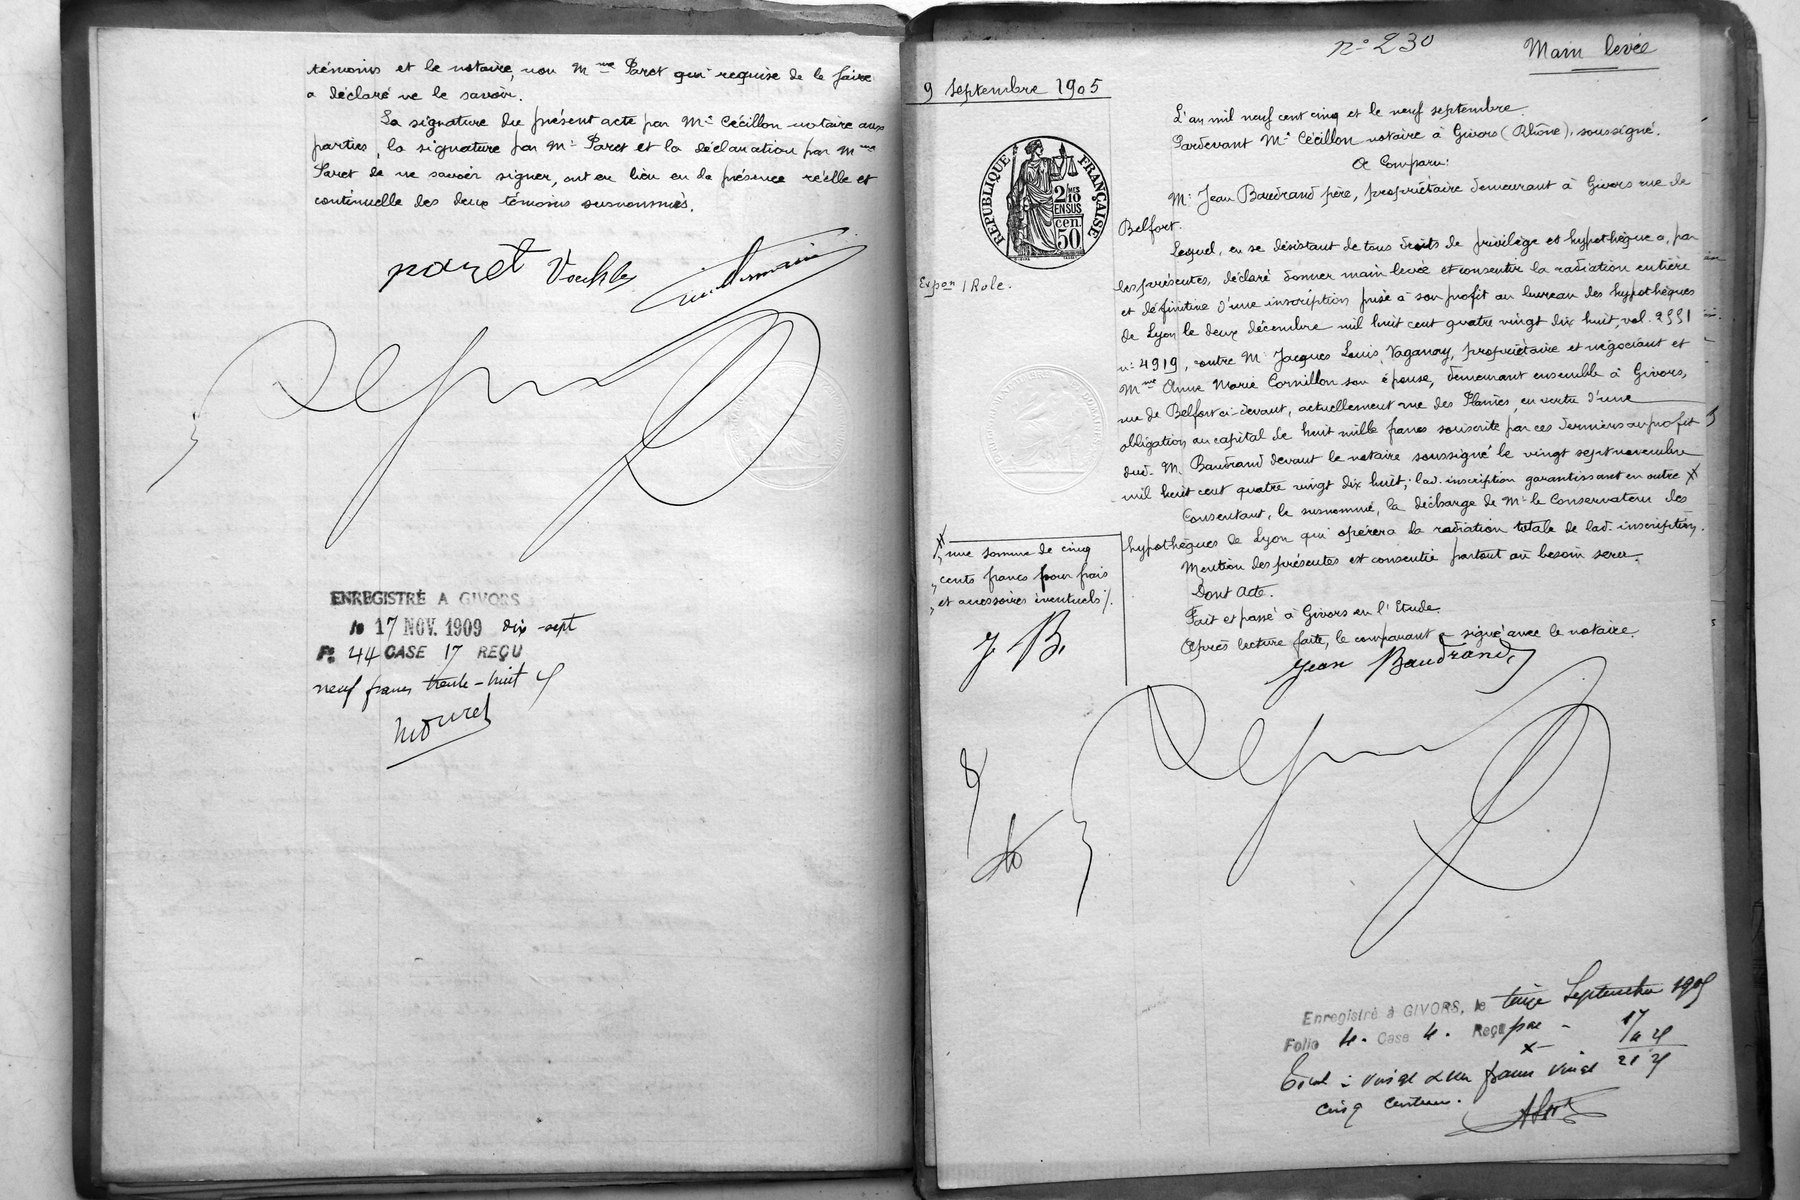 témoins et le notaire, non Mme Paret qui requise de le faire
a déclaré ne le savoir.
La signature du présent acte par Me Cécillon notaire aux
parties, la signature par Mr Paret et la déclaration par Mme
Paret de ne savoir signer, ont eu lieu en la présence réelle et
continuelle des deux témoins susnommés.
paret
ENREGISTRÉ A GIVORS
le 17 NOV. 1909 dix-sept
F° 44 CASE 17 REÇU
neuf francs trente-huit
n° 230
Main levée
9 septembre 1905
RÉPUBLIQUE FRANÇAISE
2/10 EN SUS
50 cen.
Expon 1 Role.
L'an mil neuf cent cinq et le neuf septembre.
Pardevant Me Cécillon notaire à Givors (Rhône), soussigné.
A Comparu:
Mr Jean Baudrand père, propriétaire demeurant à Givors rue de
Belfort.
Lequel, en se désistant de tous droits de privilège et hypothèque a, par
les présentes, déclaré donner main levée et consentir la radiation entière
et définitive d'une inscription prise à son profit au bureau des hypothèques
de Lyon le deux décembre mil huit cent quatre vingt dix huit, vol. 2551
n° 4919, contre Mr Jacques Louis Vaganay, propriétaire et négociant et
Mme Anne Marie Cornillon son épouse, demeurant ensemble à Givors,
rue de Belfort ci-devant, actuellement rue des Plaines, en vertu d'une
obligation au capital de huit mille francs souscrite par ces derniers au profit
dud. M. Baudrand devant le notaire soussigné le vingt sept novembre
mil huit cent quatre vingt dix huit; lad. inscription garantissant en outre X
Consentant, le susnommé, la décharge de Mr le Conservateur des
hypothèques de Lyon qui opérera la radiation totale de lad. inscription.
Mention des présentes est consentie partout où besoin sera.
Dont Acte.
Fait et passé à Givors en l'Etude.
Après lecture faite, le comparant a signé avec le notaire.
Jean Baudrand
X une somme de cinq
cents francs pour frais
et accessoires éventuels/.
J B.
Enregistré à GIVORS, le treize Septembre 1905
Folio 4. Case 4. Reçu
Total : vingt & un francs vingt
cinq centimes.